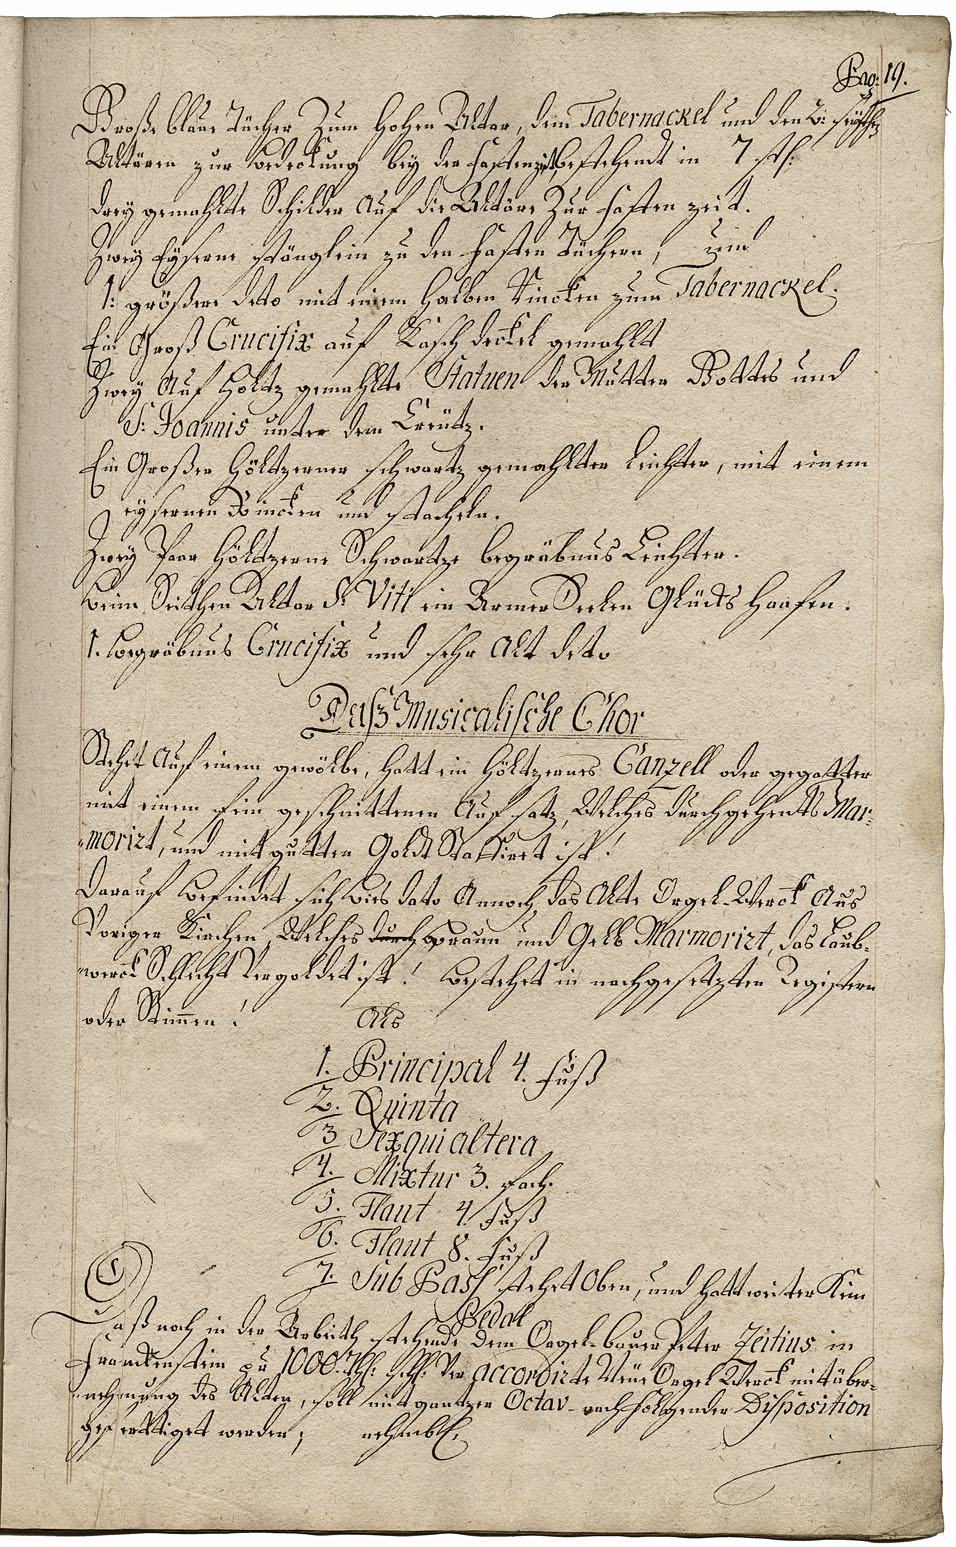 Pag: 19.
Große blaue Tücher Zum Hohen Altar, dem Tabernackel und den 2: seythen
Altären zur bedeckung bey der Fastenzeit bestehendt in 7 st:
Drey gemahlte Schilder Auf die Altäre Zur fasten zeit.
Zwey Eyserne stänglein zu den fasten Tüchern, und
1: größere deto mit einem halben Rincken zum Tabernackel.
Ein Groß Crucifix auf Kasch deckel gemahlt
Zwey Auf Holtz gemahlte Statuen der Mutter Gottes und
S: Joannis unter dem Creütz.
Ein Großer Höltzerner schwartz gemahlter Leichter, mit einem
eysernen Rincken und stacheln.
Zwey Paar Höltzerne Schwartze begräbnus Leichter.
beim Seithen Altar S: Viti ein Armer Seelen Glücks Haafen.
1. begräbnus Crucifix und sehr Alt deto
Daß Musicalische Chor
Stehet Auf einem gewölbe, hatt ein Höltzernes Canzell oder gegatter
mit einem fein geschnittenen Aufsatz, Welches durchgehents Mar-
morizt, und mit gutten Goldt Staffiret ist!
Darauf befindet sich bies dato Annoch das Alte Orgel-Werck Aus
Voriger Kirchen, Welches durch Braun und Gelb Marmorizt, das Laub-
werck Schlecht Vergoldet ist! bestehet in nachgesetzten Registern
oder Stimmen! Als
1. Principal 4. Fuß
2. Quinta
3 Sexquialtera
4. Mixtur 3. fach.
5. Flaut 4. Fuß
6. Flaut 8. Fuß
7. Sub Bass stehet Oben, und hatt weiter Kein
Pedal
Daß noch in der Arbeith stehende dem Orgel-bauer Peter Zeitius in
Franckenstein zu 1000: schl: Ver accordirte Neue Orgel Werck mit über-
nehmung des Alten, soll mit gantzer Octav nachfolgender Disposition
gefertiget werden; nehmbl.